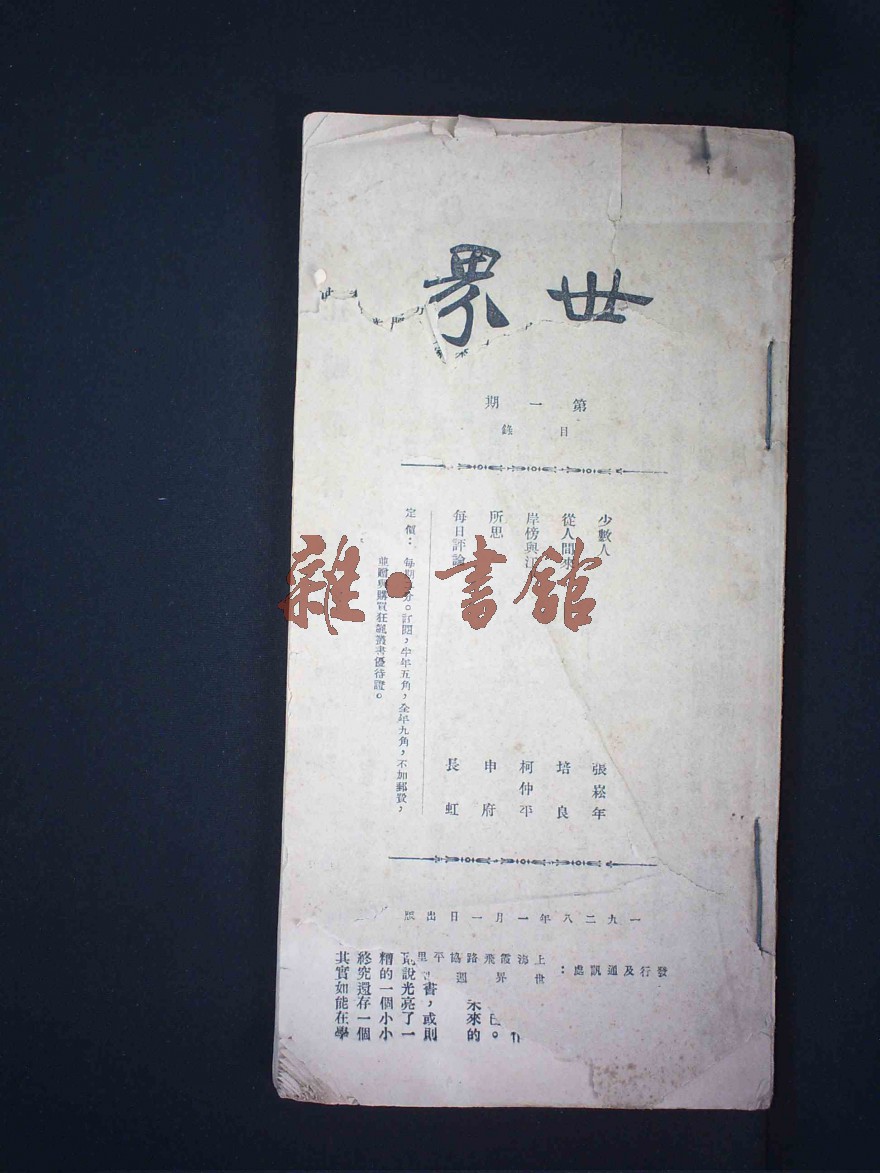 世界
第一期
目錄
少數人 張崧年
從人間來 培良
岸傍與江 柯仲平
所思 申府
每日評論 長虹
定價：每期分。訂閱，半年五角，全年九角，不加郵費，
並贈與購買狂飆叢書優待證。
一九二八年一月一日出版
發行及通訊處：
上海霞飛路協平里
世界週
未來的
書，或則
說光亮了一
糟的一個小小
終究還存一個
其實如能在學
雜·書館